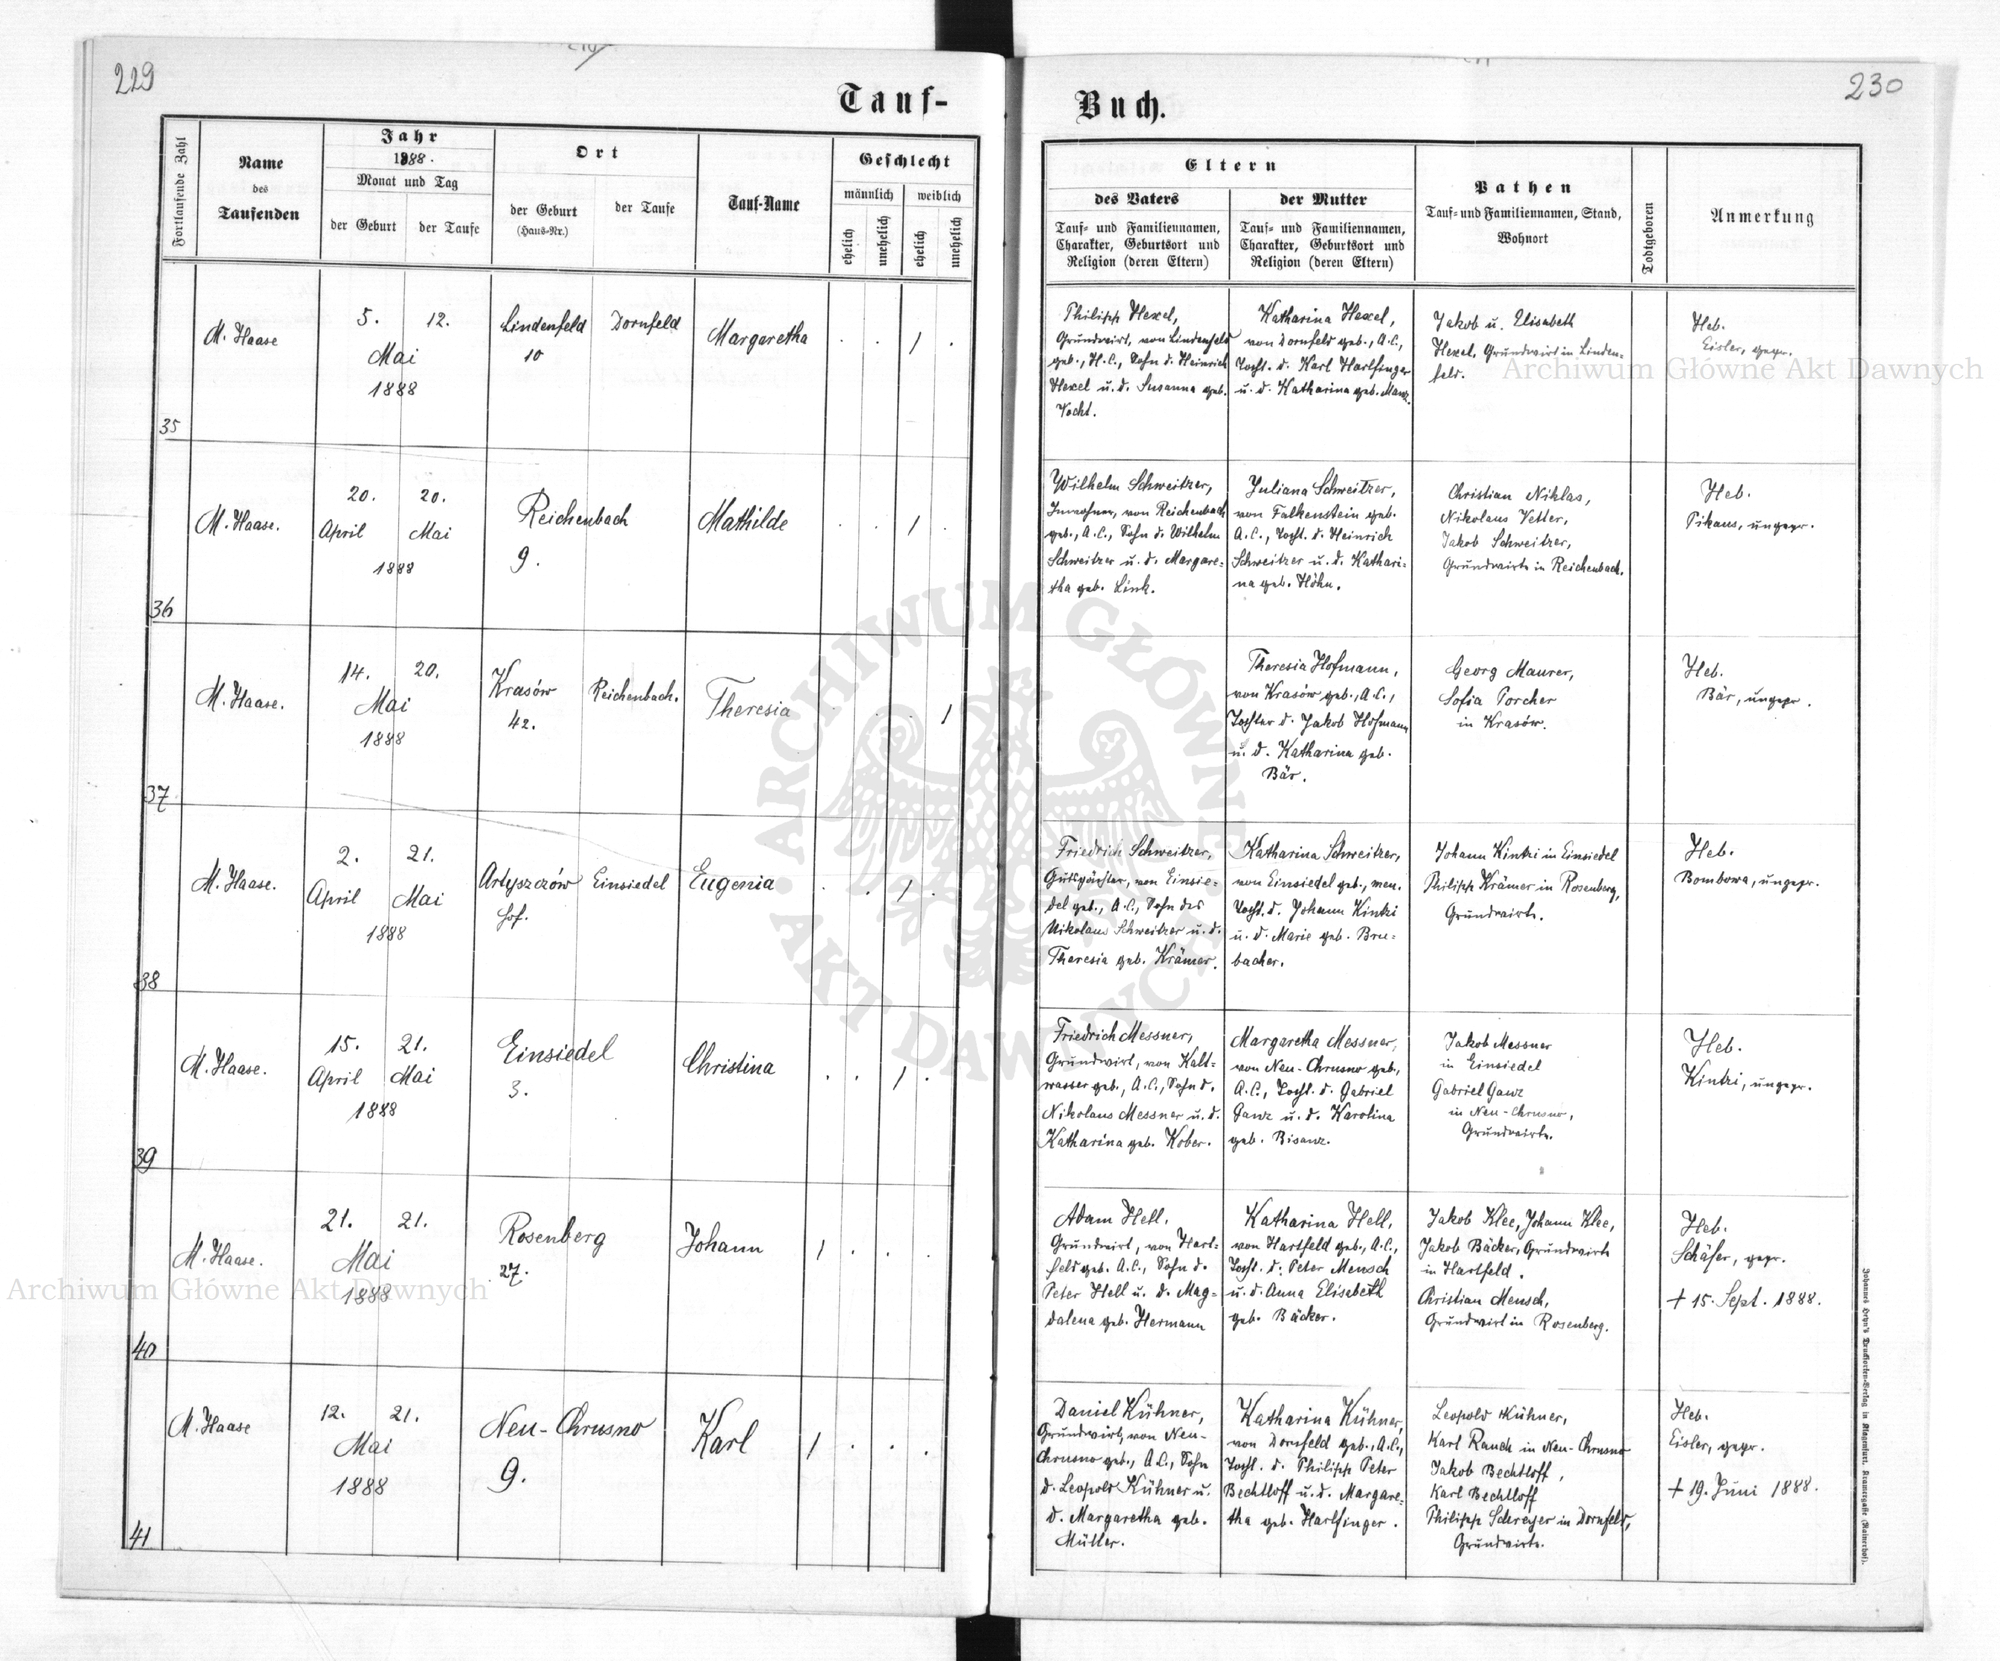 229
Tauf-
Fortlaufende Zahl
Name
des
Taufenden
Jahr
1888.
Monat und Tag
der Geburt
der Taufe
Ort
der Geburt
(Haus-Nr.)
der Taufe
Tauf-Name
Geschlecht
männlich
weiblich
ehelich
unehelich
ehelich
unehelich
35
M. Haase
5. 12.
Mai
1888
Lindenfeld
10
Dornfeld
Margaretha
. . 1 .
36
M. Haase.
20. 20.
April Mai
1888
Reichenbach
9.
Mathilde
. . 1 .
37
M. Haase.
14. 20.
Mai
1888
Krasów
42.
Reichenbach.
Theresia
. . . 1
38
M. Haase.
2. 21.
April Mai
1888
Artyszczów
Hof.
Einsiedel
Eugenia
. . 1 .
39
M. Haase.
15. 21.
April Mai
1888
Einsiedel
3.
Christina
. . 1 .
40
M. Haase.
21. 21.
Mai
1888
Rosenberg
27.
Johann
1 . . .
41
M. Haase
12. 21.
Mai
1888
Neu-Chrusno
9.
Karl
1 . . .
Buch.
230
Eltern
des Vaters
Tauf- und Familiennamen,
Charakter, Geburtsort und
Religion (deren Eltern)
der Mutter
Tauf- und Familiennamen,
Charakter, Geburtsort und
Religion (deren Eltern)
Pathen
Tauf- und Familiennamen, Stand,
Wohnort
Todtgeboren
Anmerkung
Philipp Hexel,
Grundwirt, von Lindenfeld
geb., H.C., Sohn d. Heinrich
Hexel u. d. Susanna geb.
Vocht.
Katharina Hexel,
von Dornfeld geb., A.C.,
Tocht. d. Karl Harlfinger
u. d. Katharina geb. Manz.
Jakob u. Elisabeth
Hexel, Grundwirt in Linden-
feld.
Heb.
Eisler, gepr.
Wilhelm Schweitzer,
Inwohner, von Reichenbach
geb., A.C., Sohn d. Wilhelm
Schweitzer u. d. Margare-
tha geb. Link.
Juliana Schweitzer,
von Falkenstein geb.
A.C., Tocht. d. Heinrich
Schweitzer u. d. Kathari-
na geb. Höhn.
Christian Niklas,
Nikolaus Vetter,
Jakob Schweitzer,
Grundwirte in Reichenbach.
Heb.
Pikaus, ungepr.
Theresia Hofmann,
von Krasów geb., A.C.,
Tochter d. Jakob Hofmann
u. d. Katharina geb.
Bär.
Georg Maurer,
Sofia Porcher
in Krasów.
Heb.
Bär, ungepr.
Friedrich Schweitzer,
Gutspächter, von Einsie-
del geb., A.C., Sohn des
Nikolaus Schweitzer u. d.
Theresia geb. Krämer.
Katharina Schweitzer,
von Einsiedel geb., men.
Tocht. d. Johann Kintzi
u. d. Marie geb. Bru-
bacher.
Johann Kintzi in Einsiedel
Philipp Krämer in Rosenberg,
Grundwirte.
Heb.
Bombowa, ungepr.
Friedrich Messner,
Grundwirt, von Kalt-
wasser geb., A.C., Sohn d.
Nikolaus Messner u. d.
Katharina geb. Kober.
Margaretha Messner,
von Neu-Chrusno geb.,
A.C., Tocht. d. Gabriel
Ganz u. d. Karolina
geb. Bisanz.
Jakob Messner
in Einsiedel
Gabriel Ganz
in Neu-Chrusno,
Grundwirte.
Heb.
Kintzi, ungepr.
Adam Hell,
Grundwirt, von Hart-
feld geb. A.C., Sohn d.
Peter Hell u. d. Mag-
dalena geb. Hermann
Katharina Hell,
von Hartfeld geb., A.C.,
Tocht. d. Peter Mensch
u. d. Anna Elisabeth
geb. Bäcker.
Jakob Klee, Johann Klee,
Jakob Bäcker, Grundwirte
in Hartfeld.
Christian Mensch,
Grundwirt in Rosenberg.
Heb.
Schäfer, gepr.
+ 15. Sept. 1888.
Daniel Kühner,
Grundwirt, von Neu-
Chrusno geb., A.C., Sohn
d. Leopold Kühner u.
d. Margaretha geb.
Müller.
Katharina Kühner,
von Dornfeld geb., A.C.,
Tocht. d. Philipp Peter
Bechtloff u. d. Margare-
tha geb. Harlfinger.
Leopold Kühner,
Karl Rauch in Neu-Chrusno
Jakob Bechtloff,
Karl Bechtloff
Philipp Schreyer in Dornfeld,
Grundwirte.
Heb.
Eisler, gepr.
+ 19. Juni 1888.
Johannes Heyn's Drucksorten-Verlag in Klagenfurt, Kramergasse (Rainerhof).
Archiwum Główne Akt Dawnych
Archiwum Główne Akt Dawnych
ARCHIWUM GŁÓWNE AKT DAWNYCH